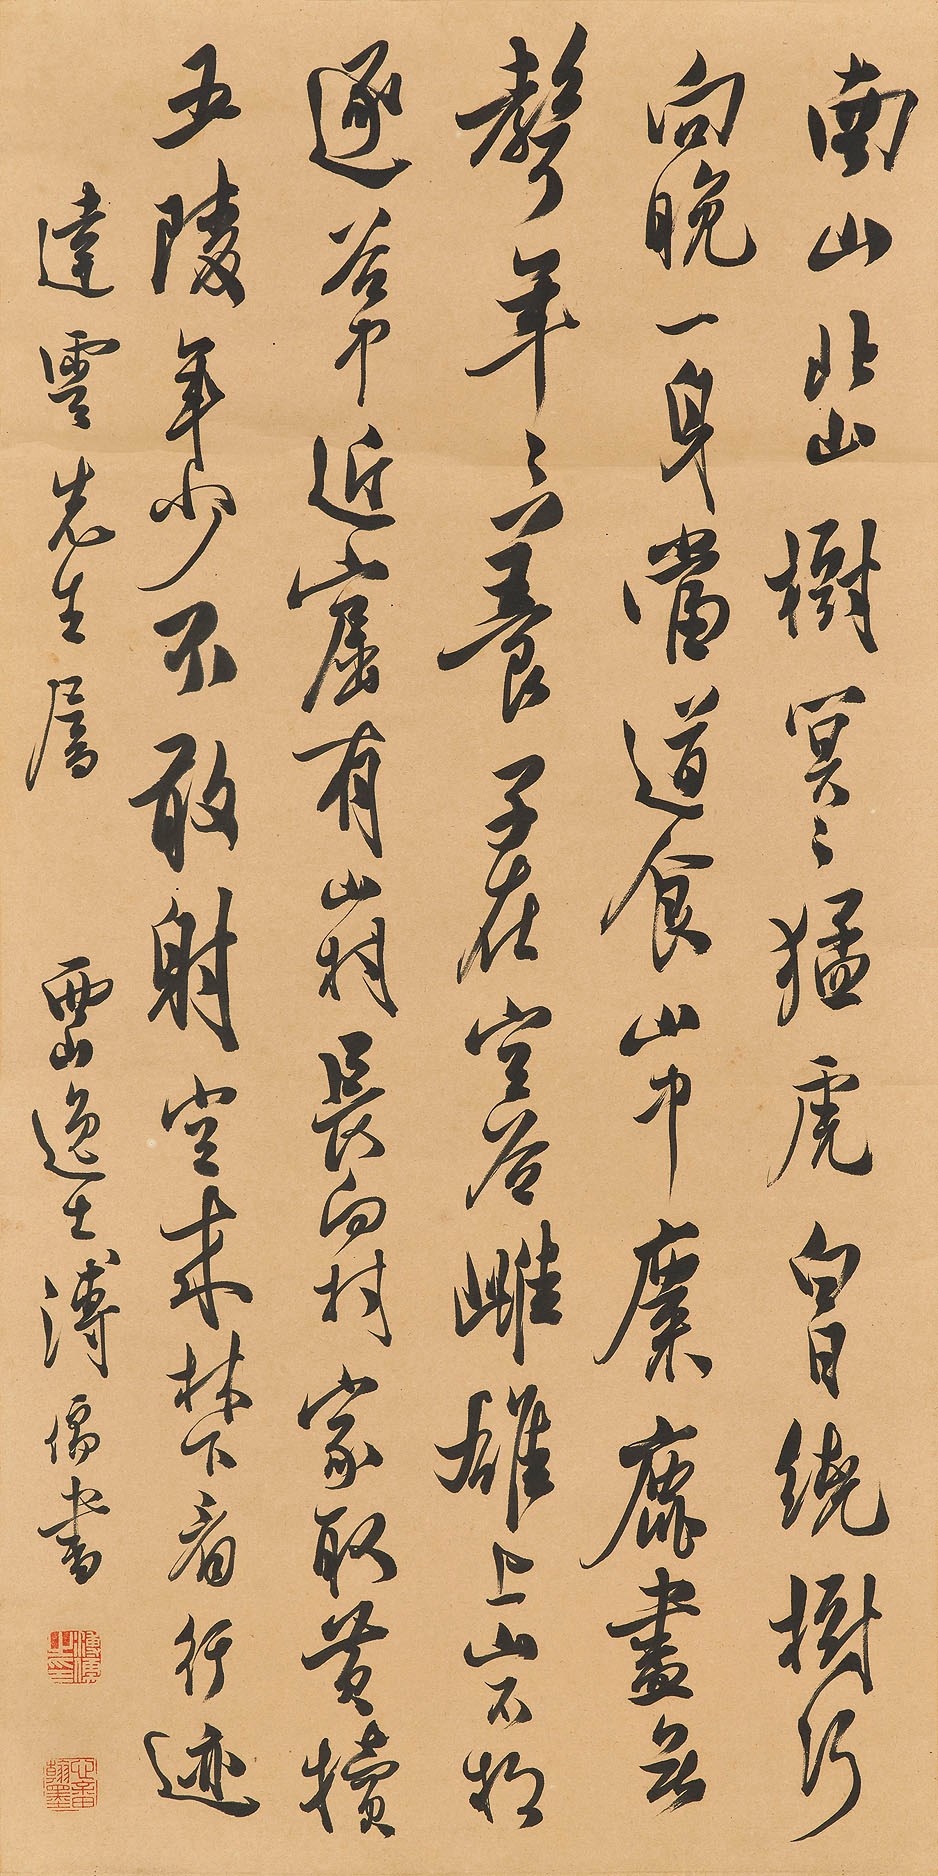 南山北山樹冥〻猛虎白日繞樹行
向晚一身當道食山中麋鹿盡無
聲年〻養子在空谷雌雄上山不相
逐谷中近窟有山村長向村家取黃犢
五陵年少不敢射空來林下看行迹
達雲先生屬
西山逸士溥儒書